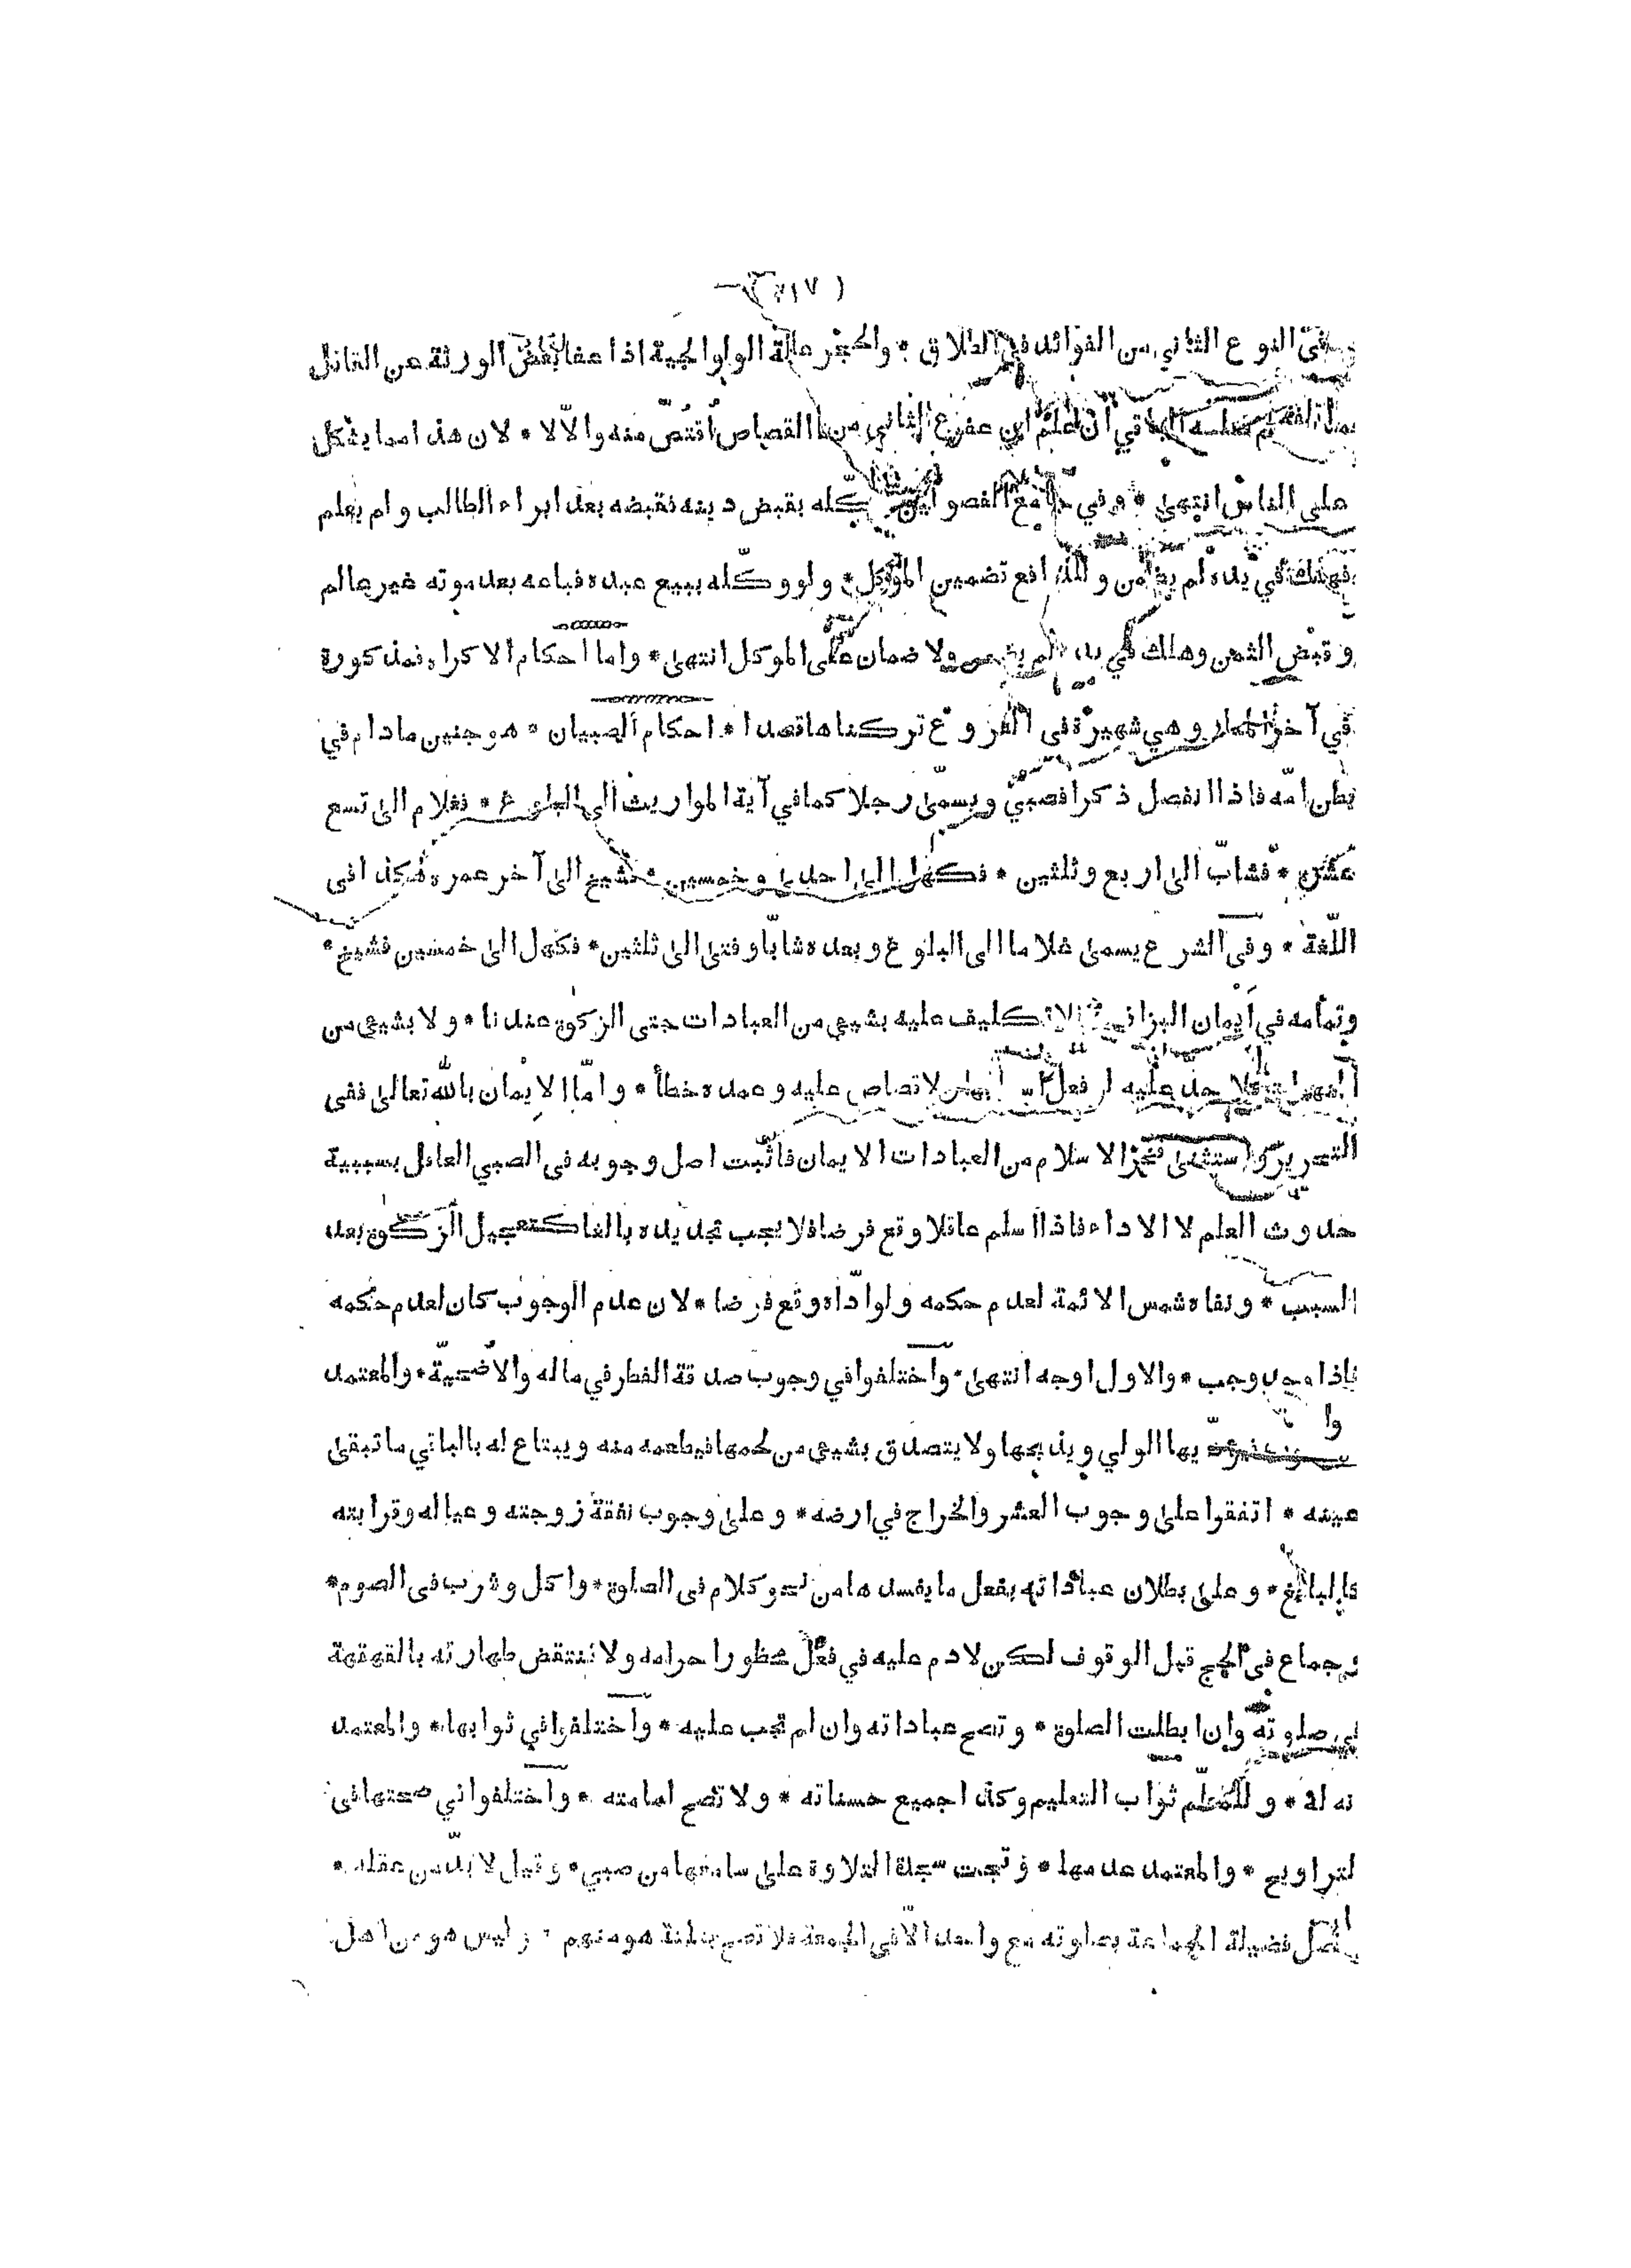 في النوع الثاني من الفوائد في الطلاق * والحجر عالة الولوالجية اذا عفا بعض الورثة عن القاتل
الباقي ان علم ان عفو القصاص اقتصّ منه والّا لا * لان هذا مما يشكل
على الناس انتهى * وفي جامع الفصولين وكّله بقبض دينه فقبضه بعد ابراء الطالب ولم يعلم
فهلك في يده لم يضمن وللدافع تضمين الموكل * ولو وكّله ببيع عبده فباعه بعد موته غير عالم
وقبض الثمن وهلك في يده لم يضمن ولا ضمان على الموكل انتهى * واما احكام الاكراه فمذكورة
في آخر المنار وهي شهيرة فى الفروع تركناها قصدا * احكام الصبيان * هو جنين مادام في
بطن امّه فاذا انفصل ذكرا فصبيّ ويسمّى رجلا كما في آية المواريث الى البلوغ * فغلام الى تسع
عشرة * فشابّ الى اربع وثلثين * فكهل الى احدى وخمسين * فشيخ الى آخر عمره هكذا فى
اللّغة * وفى الشرع يسمى غلاما الى البلوغ وبعده شابّا وفتى الى ثلثين * فكهل الى خمسين فشيخ *
وتمامه في أيمان البزازية فلا تكليف عليه بشيء من العبادات حتى الزكوة عندنا * ولا بشيء من
المنهيات فلا حدّ عليه لو فعل لا قصاص عليه وعمده خطأ * وامّا الايمان بالله تعالى ففى
التحرير واستثنى فخر الاسلام من العبادات الايمان فاثبت اصل وجوبه فى الصبي العاقل بسببية
حدوث العلم لا الاداء فاذا اسلم عاقلا وقع فرضا فلا يجب تجديده بالغا كتعجيل الزكوة بعد
السبب * ونفاه شمس الائمة لعدم حكمه ولو ادّاه وقع فرضا * لان عدم الوجوب كان لعدم حكمه
فاذا وجد وجب * والاول اوجه انتهى * واختلفوا في وجوب صدقة الفطر في ماله والاضحيّة * والمعتمد
وا
يها الولي ويذبحها ولا يتصدق بشيء من لحمها فيطعمه منه ويبتاع له بالباقي ما تبقى
عينه * اتفقوا على وجوب العشر والخراج في ارضه * وعلى وجوب نفقة زوجته وعياله وقرابته
كالبالغ * وعلى بطلان عباداته بفعل ما يفسدها من نحو كلام فى الصلوة * واكل وشرب فى الصوم *
وجماع فى الحج قبل الوقوف لكن لا دم عليه في فعل محظور احرامه ولا تنتقض طهارته بالقهقهة
في صلوته وان ابطلت الصلوة * وتصح عباداته وان لم تجب عليه * واختلفوا في ثوابها * والمعتمد
نه له * وللمعلّم ثواب التعليم وكذا جميع حسناته * ولا تصح امامته * واختلفوا في صحتها فى
لتراويح * والمعتمد عدمها * وتجب سجدة التلاوة على سامعها من صبي * وقيل لا بدّ من عقله *
فضيلة الجماعة بصلوته مع واحد الّا في الجمعة فلا تصح بثلثة هو منهم * وليس هو من اهل